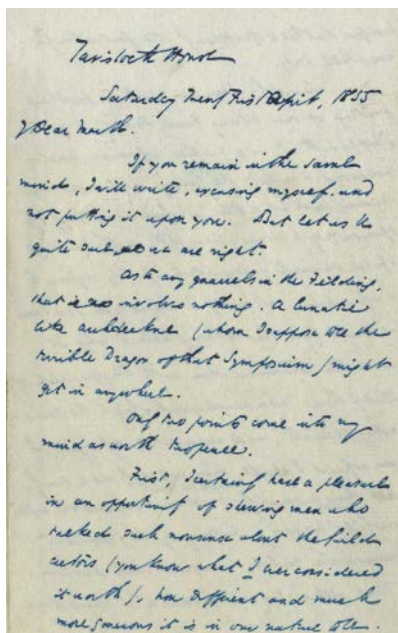 Tavistock House
Saturday Twenty First April, 1855
Dear Mark.
If you remain in the same
mind, I will write, excusing myself, and
not putting it upon you. But let us be
quite sure, we are right.
As to any quarrels in the Fielding,
that involves nothing. A lunatic
like (whom I suppose was the
terrible Dragon of that Symposium) might
get in anywhere.
Only two points come into my
mind as worth
First, I certainly have a pleasure
in an opportunity of shewing men who
talked such nonsense about the Guild
actors (you know what I ever considered
it worth), how different and much
more generous it is in our natures